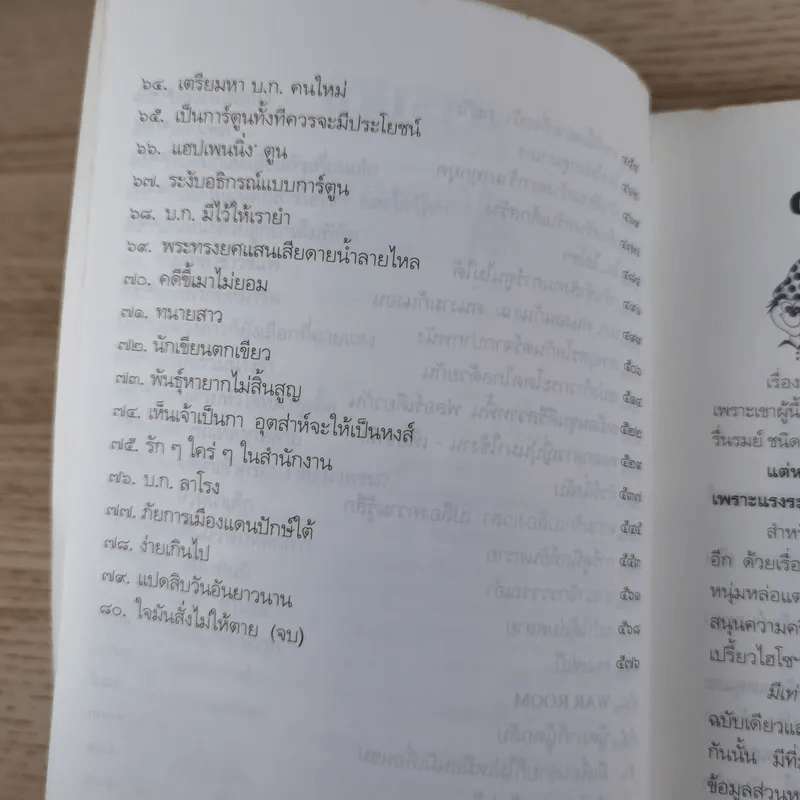 ๖๔. เตรียมหา บ.ก. คนใหม่
๖๕. เป็นการ์ตูนทั้งทีควรจะมีประโยชน์
๖๖. แฮปเพนนิ่ง ตูน
๖๗. ระงับอธิกรณ์แบบการ์ตูน
๖๘. บ.ก. มีไว้ให้เรายำ
๖๙. พระทรงยศแสนเสียดายน้ำลายไหล
๗๐. คดีขี้เมาไม่ยอม
๗๑. ทนายสาว ๕๐๖
๗๒. นักเขียนตกเขียว ๕๑๔
๗๓. พันธุ์หายากไม่สิ้นสูญ ๕๒๒
๗๔. เห็นเจ้าเป็นกา อุตส่าห์จะให้เป็นหงส์ ๕๒๙
๗๕. รัก ๆ ใคร่ ๆ ในสำนักงาน ๕๓๗
๗๖. บ.ก. ลาโรง ๕๔๕
๗๗. ภัยการเมืองแดนปักษ์ใต้ ๕๕๓
๗๘. ง่ายเกินไป ๕๖๑
๗๙. แปดสิบวันอันยาวนาน ๕๖๘
๘๐. ใจมันสั่งไม่ให้ตาย (จบ) ๕๗๖
เรื่อง
เพราะเขาผู้นี้
รื่นรมย์ ชนิด
แต่ห
เพราะแรงระ
สำห
อีก ด้วยเรื่อ
หนุ่มหล่อแต
สนุนความค
เปรี้ยวไฮโซ
มีเท่า
ฉบับเดียวแล
กันนั้น มีที่
ข้อมูลส่วนห